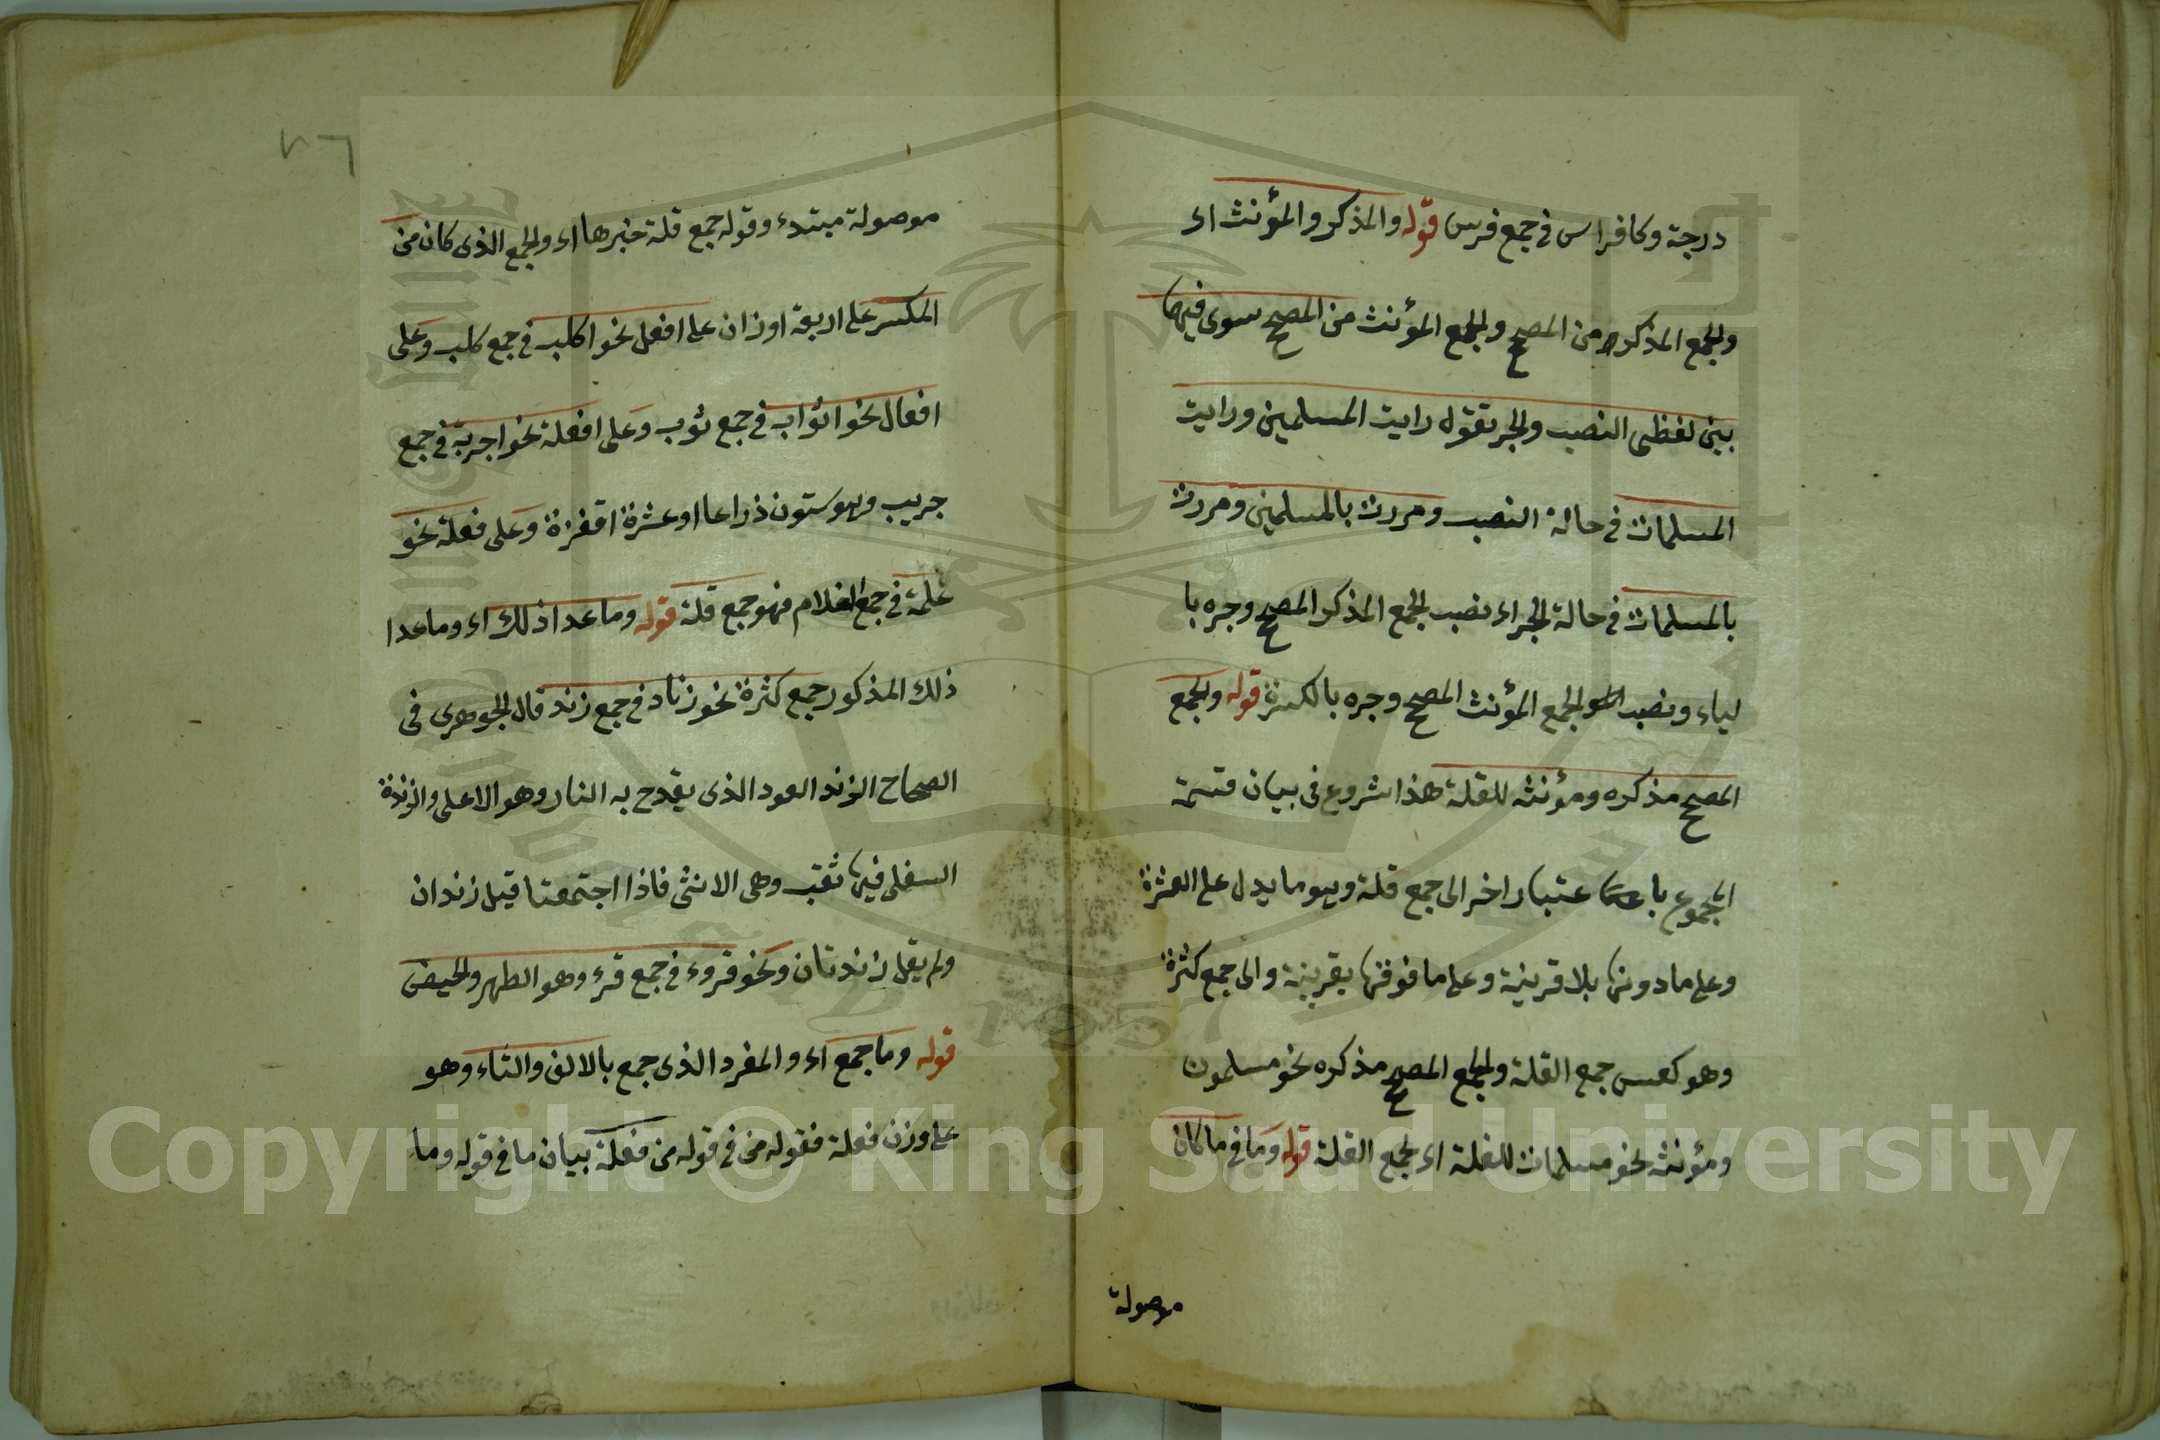 درجة وكافراس في جمع فرس قوله والمذكر والمؤنث اى
والجمع المذكر من المصحح والجمع المؤنث من المصحح سوى فيهما
بين لفظى النصب والجر تقول رايت المسلمين ورايت
المسلمات في حالة النصب ومررت بالمسلمين ومررت
بالمسلمات في حالة الجر اى نصب الجمع المذكر المصحح وجره با
لياء ونصب الجمع المؤنث المصحح وجره بالكسرة قوله والجمع
المصحح مذكره ومؤنثه للقلة هذا شروع فى بيان قسمة
الجموع باعتبار اخر الى جمع قلة وهو ما يدل على العشرة
وعلى ما دونها بلا قرينة وعلى ما فوقها بقرينة والى جمع كثرة
وهو كعكس جمع القلة والجمع المصحح مذكره نحو مسلمون
ومؤنثه نحو مسلمات للقلة اى لجمع القلة قوله وما في ما كان
موصولة
٧٦
موصولة مبتدء وقوله جمع قلة خبرها اى والجمع الذى كان من
المكسر على اربعة اوزان على افعل نحو اكلب في جمع كلب وعلى
افعال نحو اثواب في جمع ثوب وعلى افعلة نحو اجربة في جمع
جريب وهو ستون ذراعا او عشرة اقفزة وعلى فعلة نحو
غلمة في جمع الغلام فهو جمع قلة قوله وما عدا ذلك اى وما عدا
ذلك المذكور جمع كثرة نحو زناد في جمع زند قال الجوهرى فى
الصحاح الزند العود الذى يقدح به النار وهو الاعلى والزندة
السفلى فيها ثقب وهى الانثى فاذا اجتمعتا قيل زندان
ولم يقل زندتان ونحو قروء في جمع قرء وهو الطهر والحيض
قوله وما جمع اى والمفرد الذى جمع بالالف والتاء وهو
على وزن فعلة فقوله من في قوله من فعلة بيان ما في قوله وما
Copyright © King Saud University